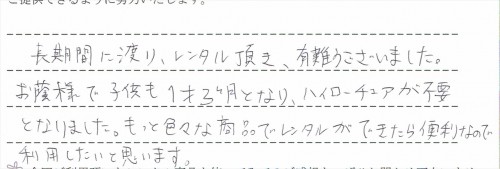 ご提供できるように努力いたします。
長期間に渡り、レンタル頂き、有難うございました。
お蔭様で子供も1才3ヶ月となり、ハイローチェアが不要
となりました。もっと色々な商品でレンタルができたら便利なので
利用したいと思います。